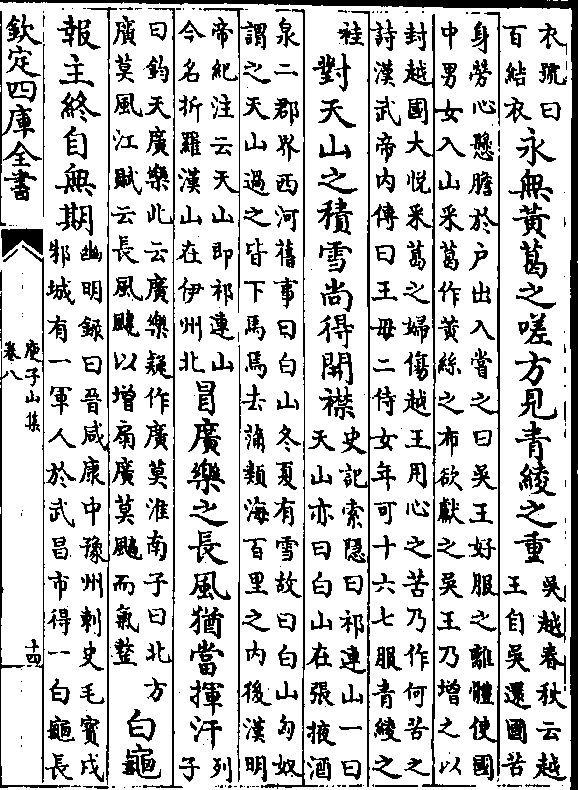 衣號曰
百結衣
永無黃葛之嗟方見青綾之重
吳越春秋云越
王自吳還國苦
身勞心懸膽於戶出入嘗之曰吳王好服之離體使國
中男女入山采葛作黃絲之布欲獻之吳王乃增之以
封越國大悅采葛之婦傷越王用心之苦乃作何苦之
詩漢武帝内傳曰王母二侍女年可十六七服青綾之
袿
對天山之積雪尚得開襟
史記索隱曰祁連山一曰
天山亦曰白山在張掖酒
泉二郡界西河舊事曰白山冬夏有雪故曰白山匈奴
謂之天山過之皆下馬馬去蒲類海百里之内後漢明
帝紀注云天山即祁連山
今名折羅漢山在伊州北
冒廣樂之長風猶當揮汗
列
子
曰鈞天廣樂此云廣樂疑作廣莫淮南子曰北方
廣莫風江賦云長風颷以增扇廣莫颷而氣整
白龜
報主終自無期
幽明錄曰晉咸康中豫州刺史毛寳戍
邾城有一軍人於武昌市得一白龜長
欽定四庫全書
庾子山集
卷八
十四